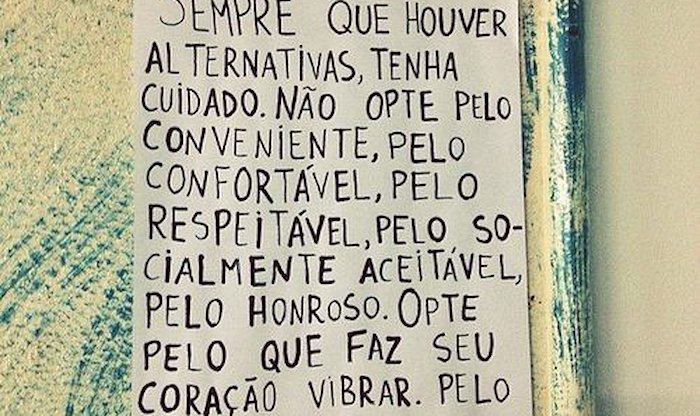 SEMPRE QUE HOUVER
ALTERNATIVAS, TENHA
CUIDADO. NÃO OPTE PELO
CONVENIENTE, PELO
CONFORTÁVEL, PELO
RESPEITÁVEL, PELO SO-
CIALMENTE ACEITÁVEL,
PELO HONROSO. OPTE
PELO QUE FAZ SEU
CORAÇÃO VIBRAR. PELO